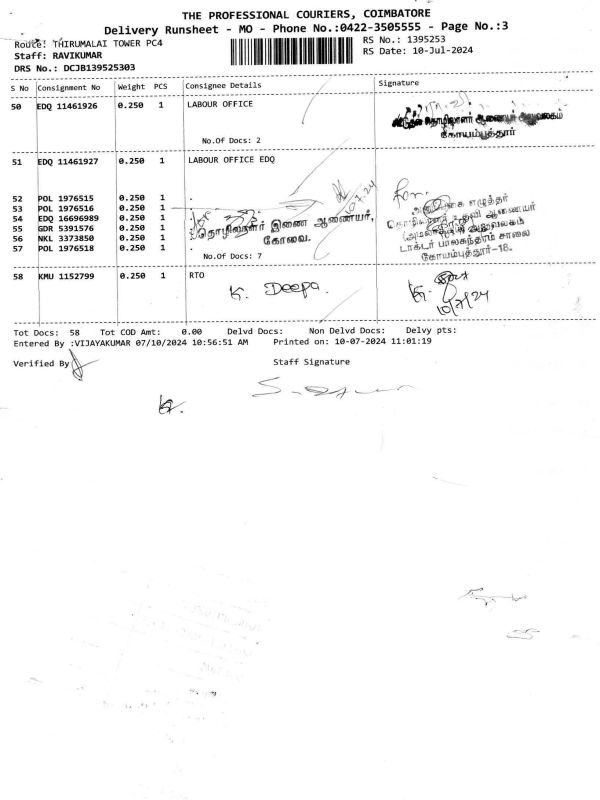 THE PROFESSIONAL COURIERS, COIMBATORE
Delivery Runsheet - MO - Phone No.:0422-3505555 - Page No.:3
Route: THIRUMALAI TOWER PC4
RS No.: 1395253
Staff: RAVIKUMAR
RS Date: 10-Jul-2024
DRS No.: DCJB139525303
S No Consignment No Weight PCS Consignee Details Signature
50 EDQ 11461926 0.250 1 LABOUR OFFICE
ஆணையர் அலுவலகம்
கோயம்புத்தூர்
No.Of Docs: 2
51 EDQ 11461927 0.250 1 LABOUR OFFICE EDQ
52 POL 1976515 0.250 1 .
53 POL 1976516 0.250 1
54 EDQ 16696989 0.250 1
55 GDR 5391576 0.250 1
56 NKL 3373850 0.250 1
57 POL 1976518 0.250 1 .
தொழிலாளர் இணை ஆணையர்,
கோவை.
டாக்டர் பாலசுந்தரம் சாலை
கோயம்புத்தூர்-18.
No.Of Docs: 7
58 KMU 1152799 0.250 1 RTO
K. Deepa
10/7/24
Tot Docs: 58 Tot COD Amt: 0.00 Delvd Docs: Non Delvd Docs: Delvy pts:
Entered By :VIJAYAKUMAR 07/10/2024 10:56:51 AM Printed on: 10-07-2024 11:01:19
Verified By
Staff Signature